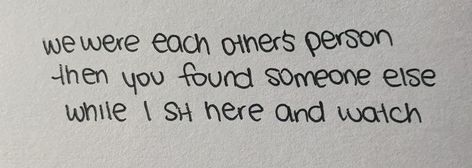 we were each other's person
then you found someone else
while I sit here and watch